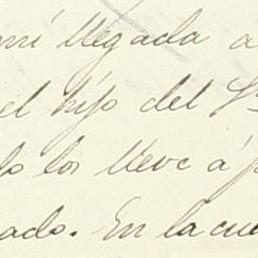 mi llegada a
el hijo del S
lo los lleve á p
ado. En la cue